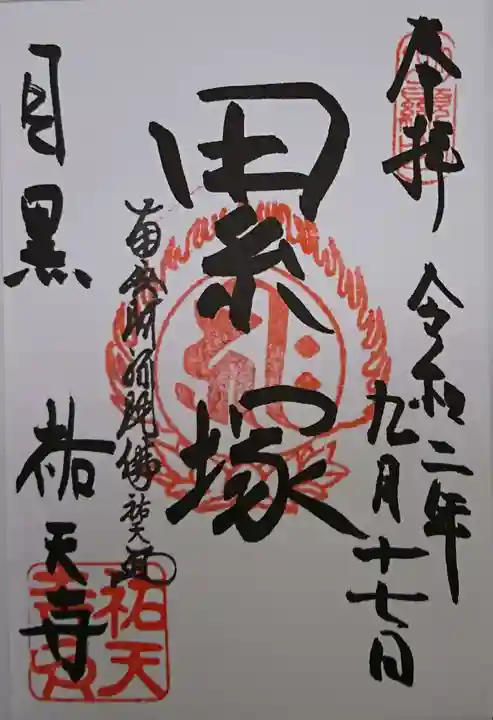 奉拝
令和二年
九月十七日
累塚
南無阿弥陀佛 祐天
目黒
祐天寺
祐天